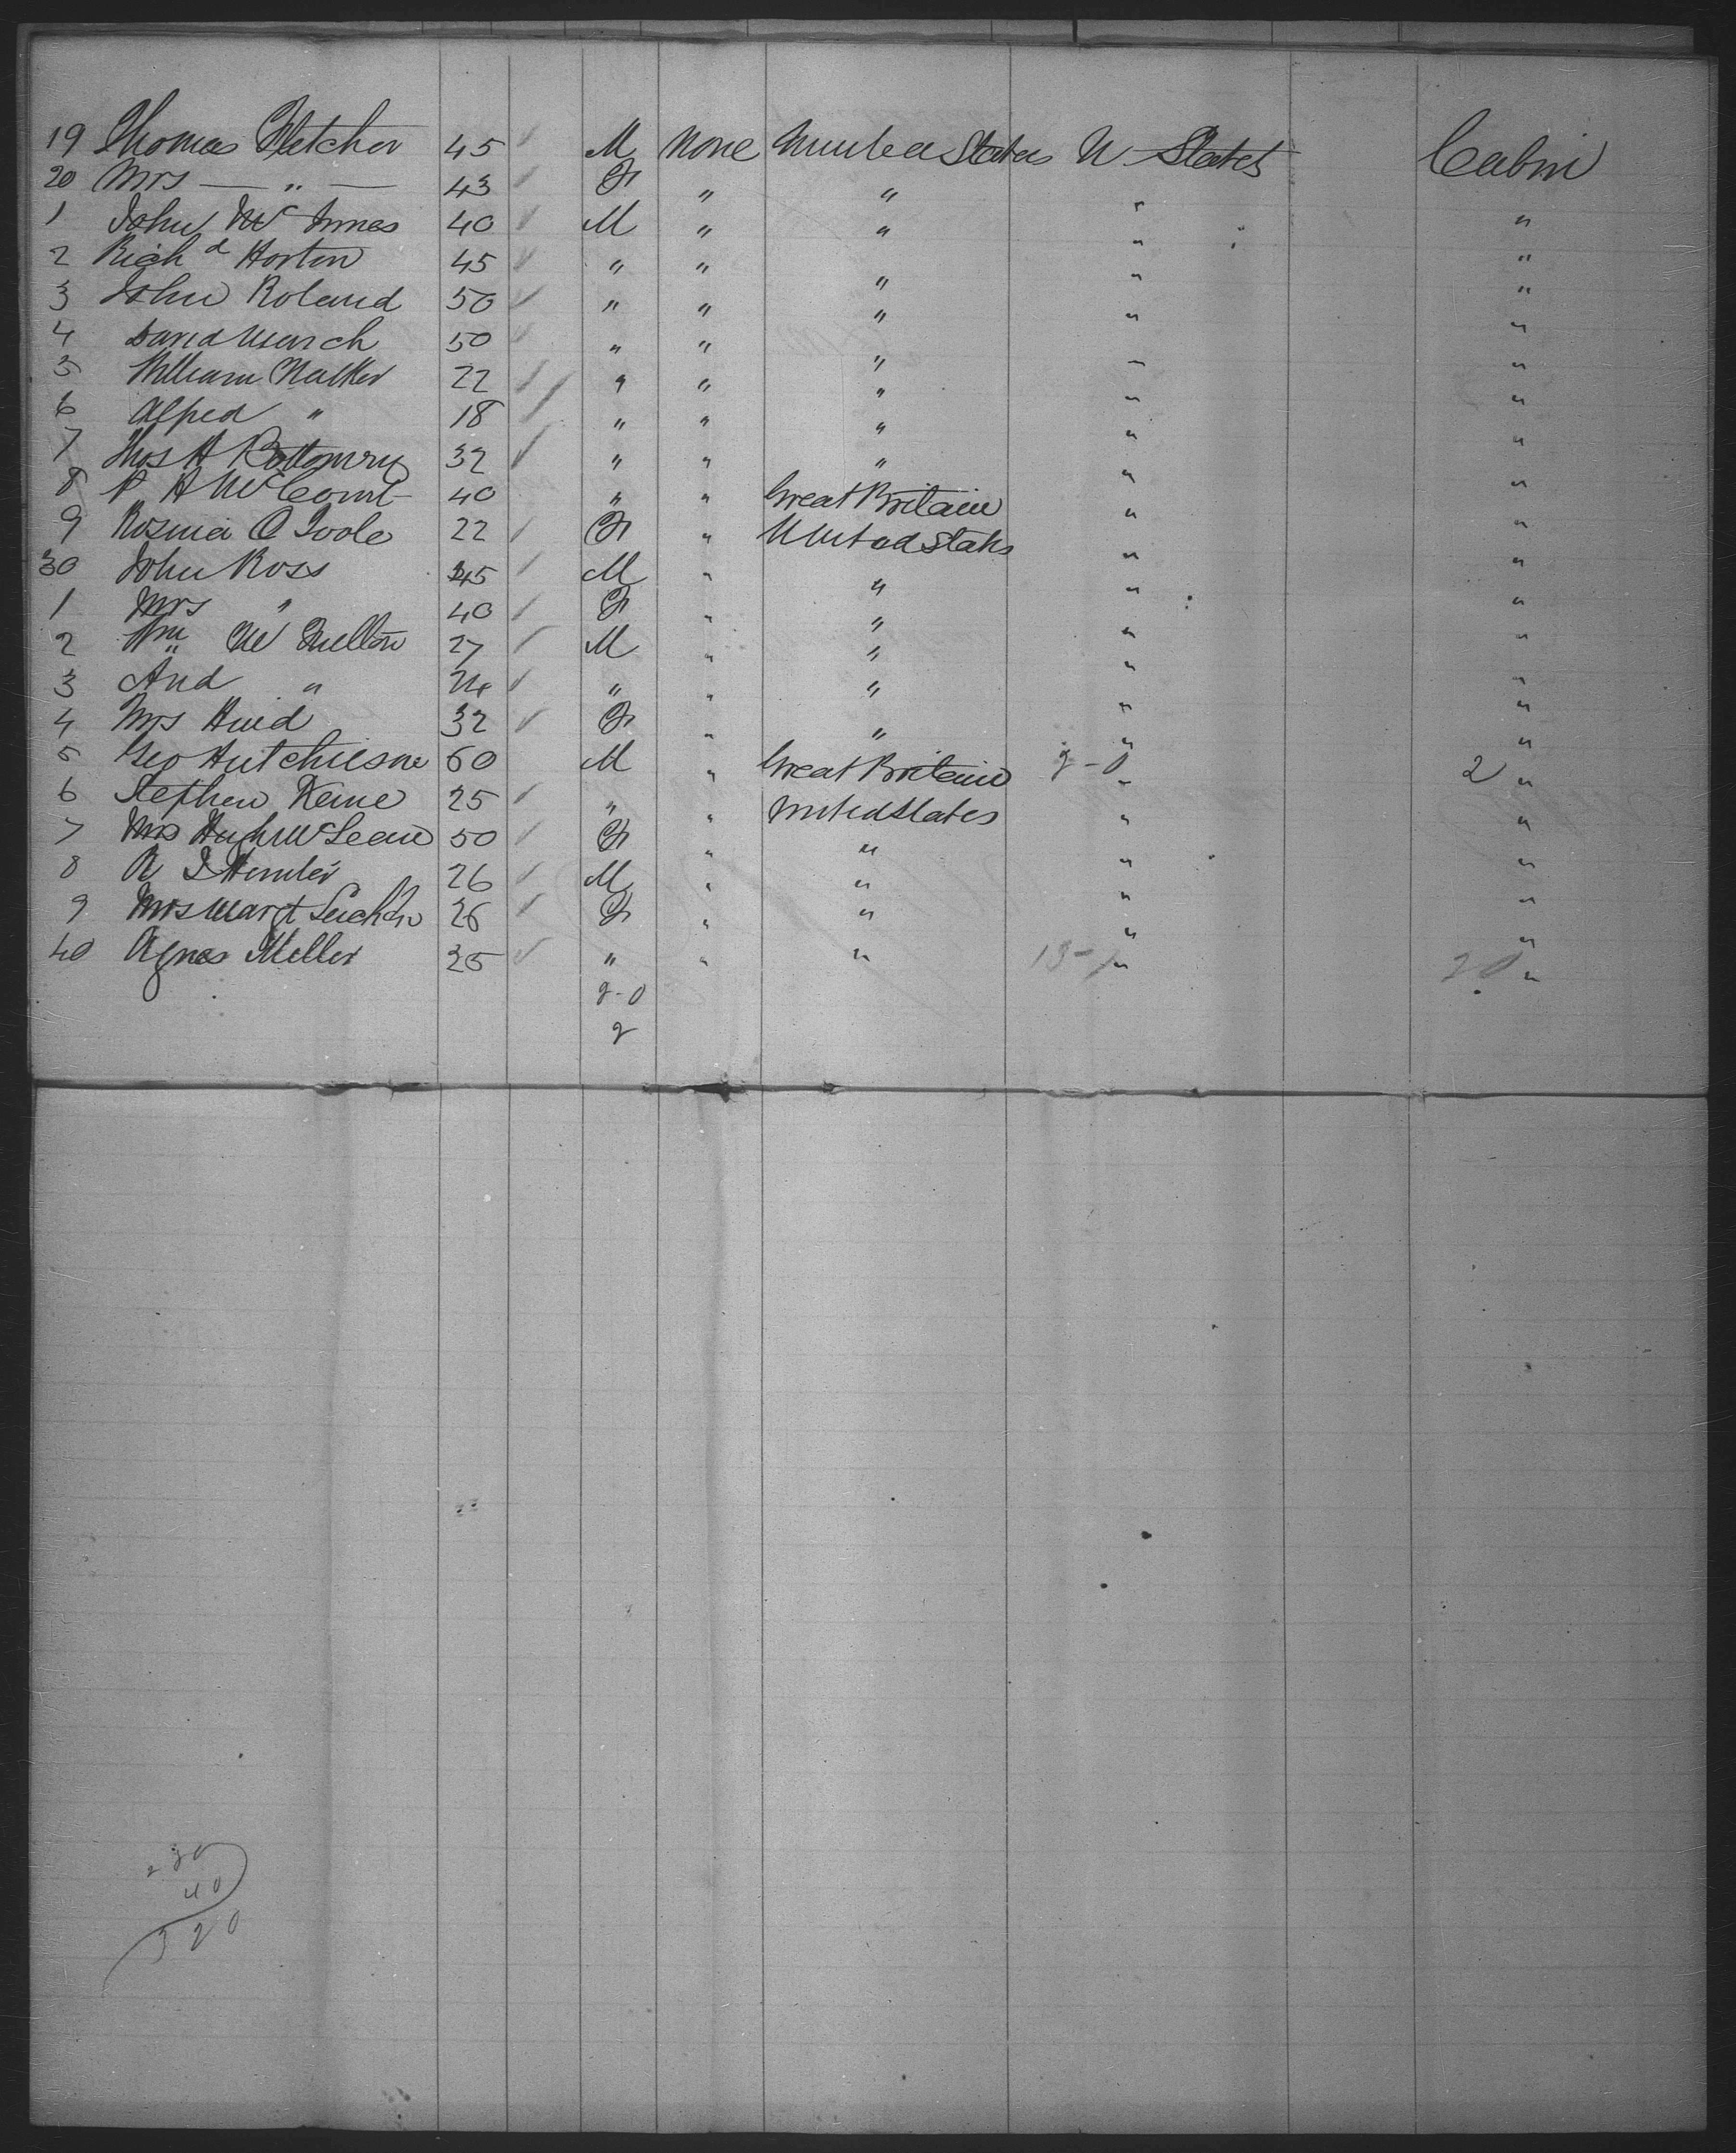 19 Thomas Fletcher 45 M None United States U States Cabin
20 Mrs — " — 43 F " " " "
1 John Mc Innes 40 M " " " "
2 Richd Horton 45 " " " " "
3 John Roland 50 " " " " "
4 David March 50 " " " " "
5 William Walker 22 " " " " "
6 Alfred " 18 " " " " "
7 Thos H Bottomry 32 " " " " "
8 A McComb 40 " " Great Britain " "
9 Rosina O Toole 22 F " United States " "
30 John Ross 45 M " " " "
1 Mrs " 40 F " " " "
2 Wm Mc 27 M " " " "
3 And " " " " " "
4 Mrs 32 F " " " "
5 Geo Hutchisone 60 M " Great Britain 2-0 " 2 "
6 Stephen Keine 25 " " United States " "
7 Mrs Hugh McLean 50 F " " " "
8 R 26 M " " " "
9 Mrs Margt 26 F " " " "
40 Agnes Meller 25 " " " 18-/ " 20 "
2-0
2
40
320